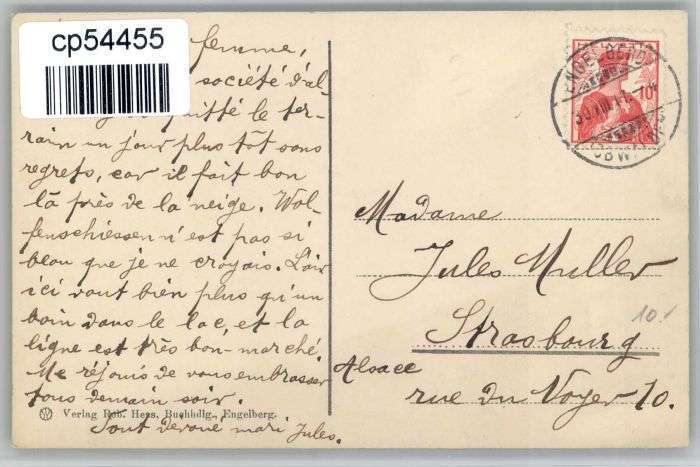 cp54455
femme,
société d'al-
quitté le ter-
rain un jour plus tôt sans
regrets, car il fait bon
là près de la neige. Wol-
fenschiessen n'est pas si
beau que je ne croyais. L'air
ici vaut bien plus qu'un
bain dans le lac, et la
ligne est très bon-marché
Me réjouis de vous embrasser
tous demain soir.
Verlag Rob. Hess, Buchhdlg., Engelberg.
Tout dévoué mari Jules.
10
Madame
Jules Muller
Strasbourg
10.-
Alsace
rue du Noyer 10.